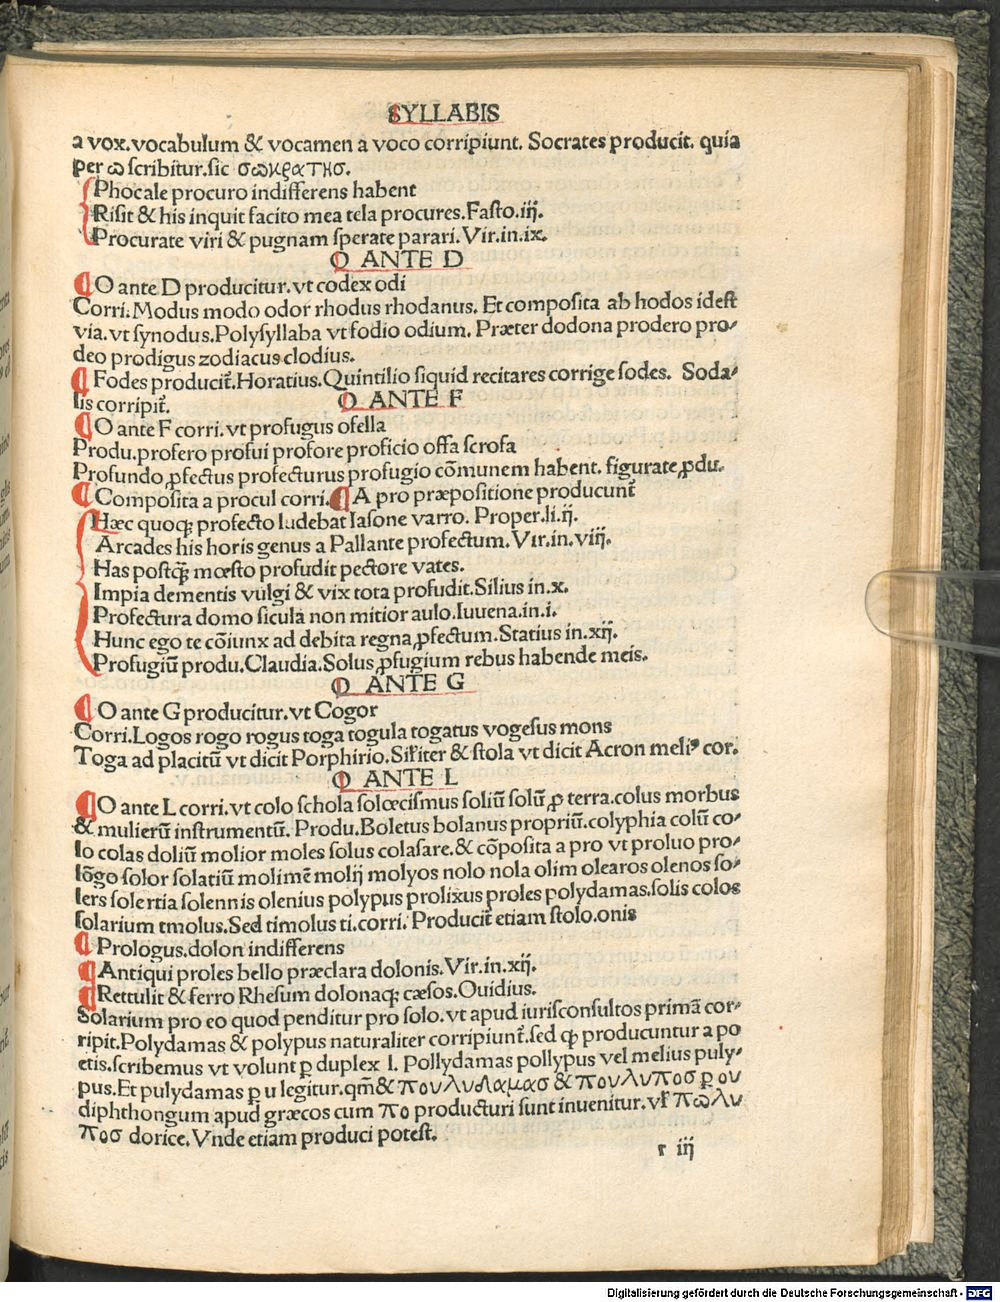 SYLLABIS
a vox.vocabulum & vocamen a voco corripiunt. Socrates producit. quia
per ω ſcribitur.ſic σωκρατησ.
Phocale procuro indifferens habent
Riſit & his inquit facito mea tela procures.Faſto.iij.
Procurate viri & pugnam ſperate parari.Vir.in.ix.
O ANTE D
¶ O ante D producitur.vt codex odi
Corri.Modus modo odor rhodus rhodanus. Et compoſita ab hodos ideſt
via.vt ſynodus.Polyſyllaba vt fodio odium. Præter dodona prodero pro⸗
deo prodigus zodiacus clodius.
¶ Fodes producit̃.Horatius.Quintilio ſiquid recitares corrige ſodes. Soda⸗
lis corripit̃.
O ANTE F
¶ O ante F corri.vt profugus ofella
Produ.profero profui profore proficio offa ſcrofa
Profundo ꝓfectus profecturus profugio cōmunem habent. figurate ꝓdu.
¶ Compoſita a procul corri.¶ A pro præpoſitione producunt̃
Hæc quoqꝫ profecto ludebat Iaſone varro. Proper.li.ij.
Arcades his horis genus a Pallante profectum.Vir.in.viij.
Has poſtꝙ̃ mœſto profudit pectore vates.
Impia dementis vulgi & vix tota profudit.Silius in.x.
Profectura domo ſicula non mitior aulo.Iuuena.in.i.
Hunc ego te cōiunx ad debita regna ꝓfectum.Statius in.xij.
Profugiū produ.Claudia.Solus ꝓfugium rebus habende meis.
O ANTE G
¶ O ante G producitur.vt Cogor
Corri.Logos rogo rogus toga togula togatus vogeſus mons
Toga ad placitū vt dicit Porphirio.Sil̃iter & ſtola vt dicit Acron meliꝰ cor.
O ANTE L
¶ O ante L corri.vt colo ſchola ſolœciſmus ſoliū ſolū ꝓ terra.colus morbus
& mulierū inſtrumentū. Produ.Boletus bolanus propriū.colyphia colū co⸗
lo colas doliū molior moles ſolus colaſare.& cōpoſita a pro vt proluo pro⸗
lōgo ſolor ſolatiū molimē molij molyos nolo nola olim olearos olenos ſo⸗
lers ſolertia ſolennis olenius polypus prolixus proles polydamas.ſolis colos
ſolarium tmolus.Sed timolus ti.corri. Producit̃ etiam ſtolo.onis
¶ Prologus.dolon indifferens
¶ Antiqui proles bello præclara dolonis.Vir.in.xij.
¶ Rettulit & ferro Rheſum dolonaqꝫ cæſos.Ouidius.
Solarium pro eo quod penditur pro ſolo.vt apud iuriſconſultos primā cor⸗
ripit.Polydamas & polypus naturaliter corripiunt̃.ſed ꝙ producuntur a po
etis.ſcribemus vt volunt ꝑ duplex l. Pollydamas pollypus vel melius puly⸗
pus.Et pulydamas ꝑ u legitur.qm̃ & πουλυδαμασ & πουλυποσ ꝑ ου
diphthongum apud græcos cum πο producturi ſunt inuenitur.vl̃ πωλυ
ποσ dorice.Vnde etiam produci poteſt.
r iij
Digitalisierung gefördert durch die Deutsche Forschungsgemeinschaft - DFG